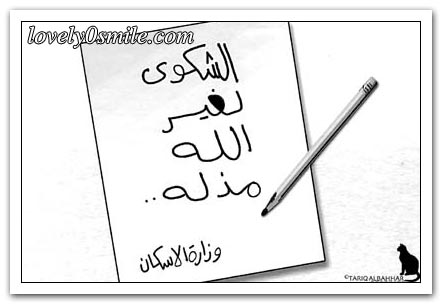 lovely0smile.com
الشكوى
لغير
الله
مذله..
وزارة الاسكان
©TARIQALBAHHAR